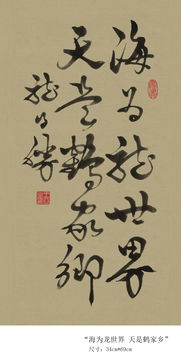 海为龍世界
天是鶴家鄉
“海为龙世界 天是鹤家乡”
尺寸：34cm*69cm